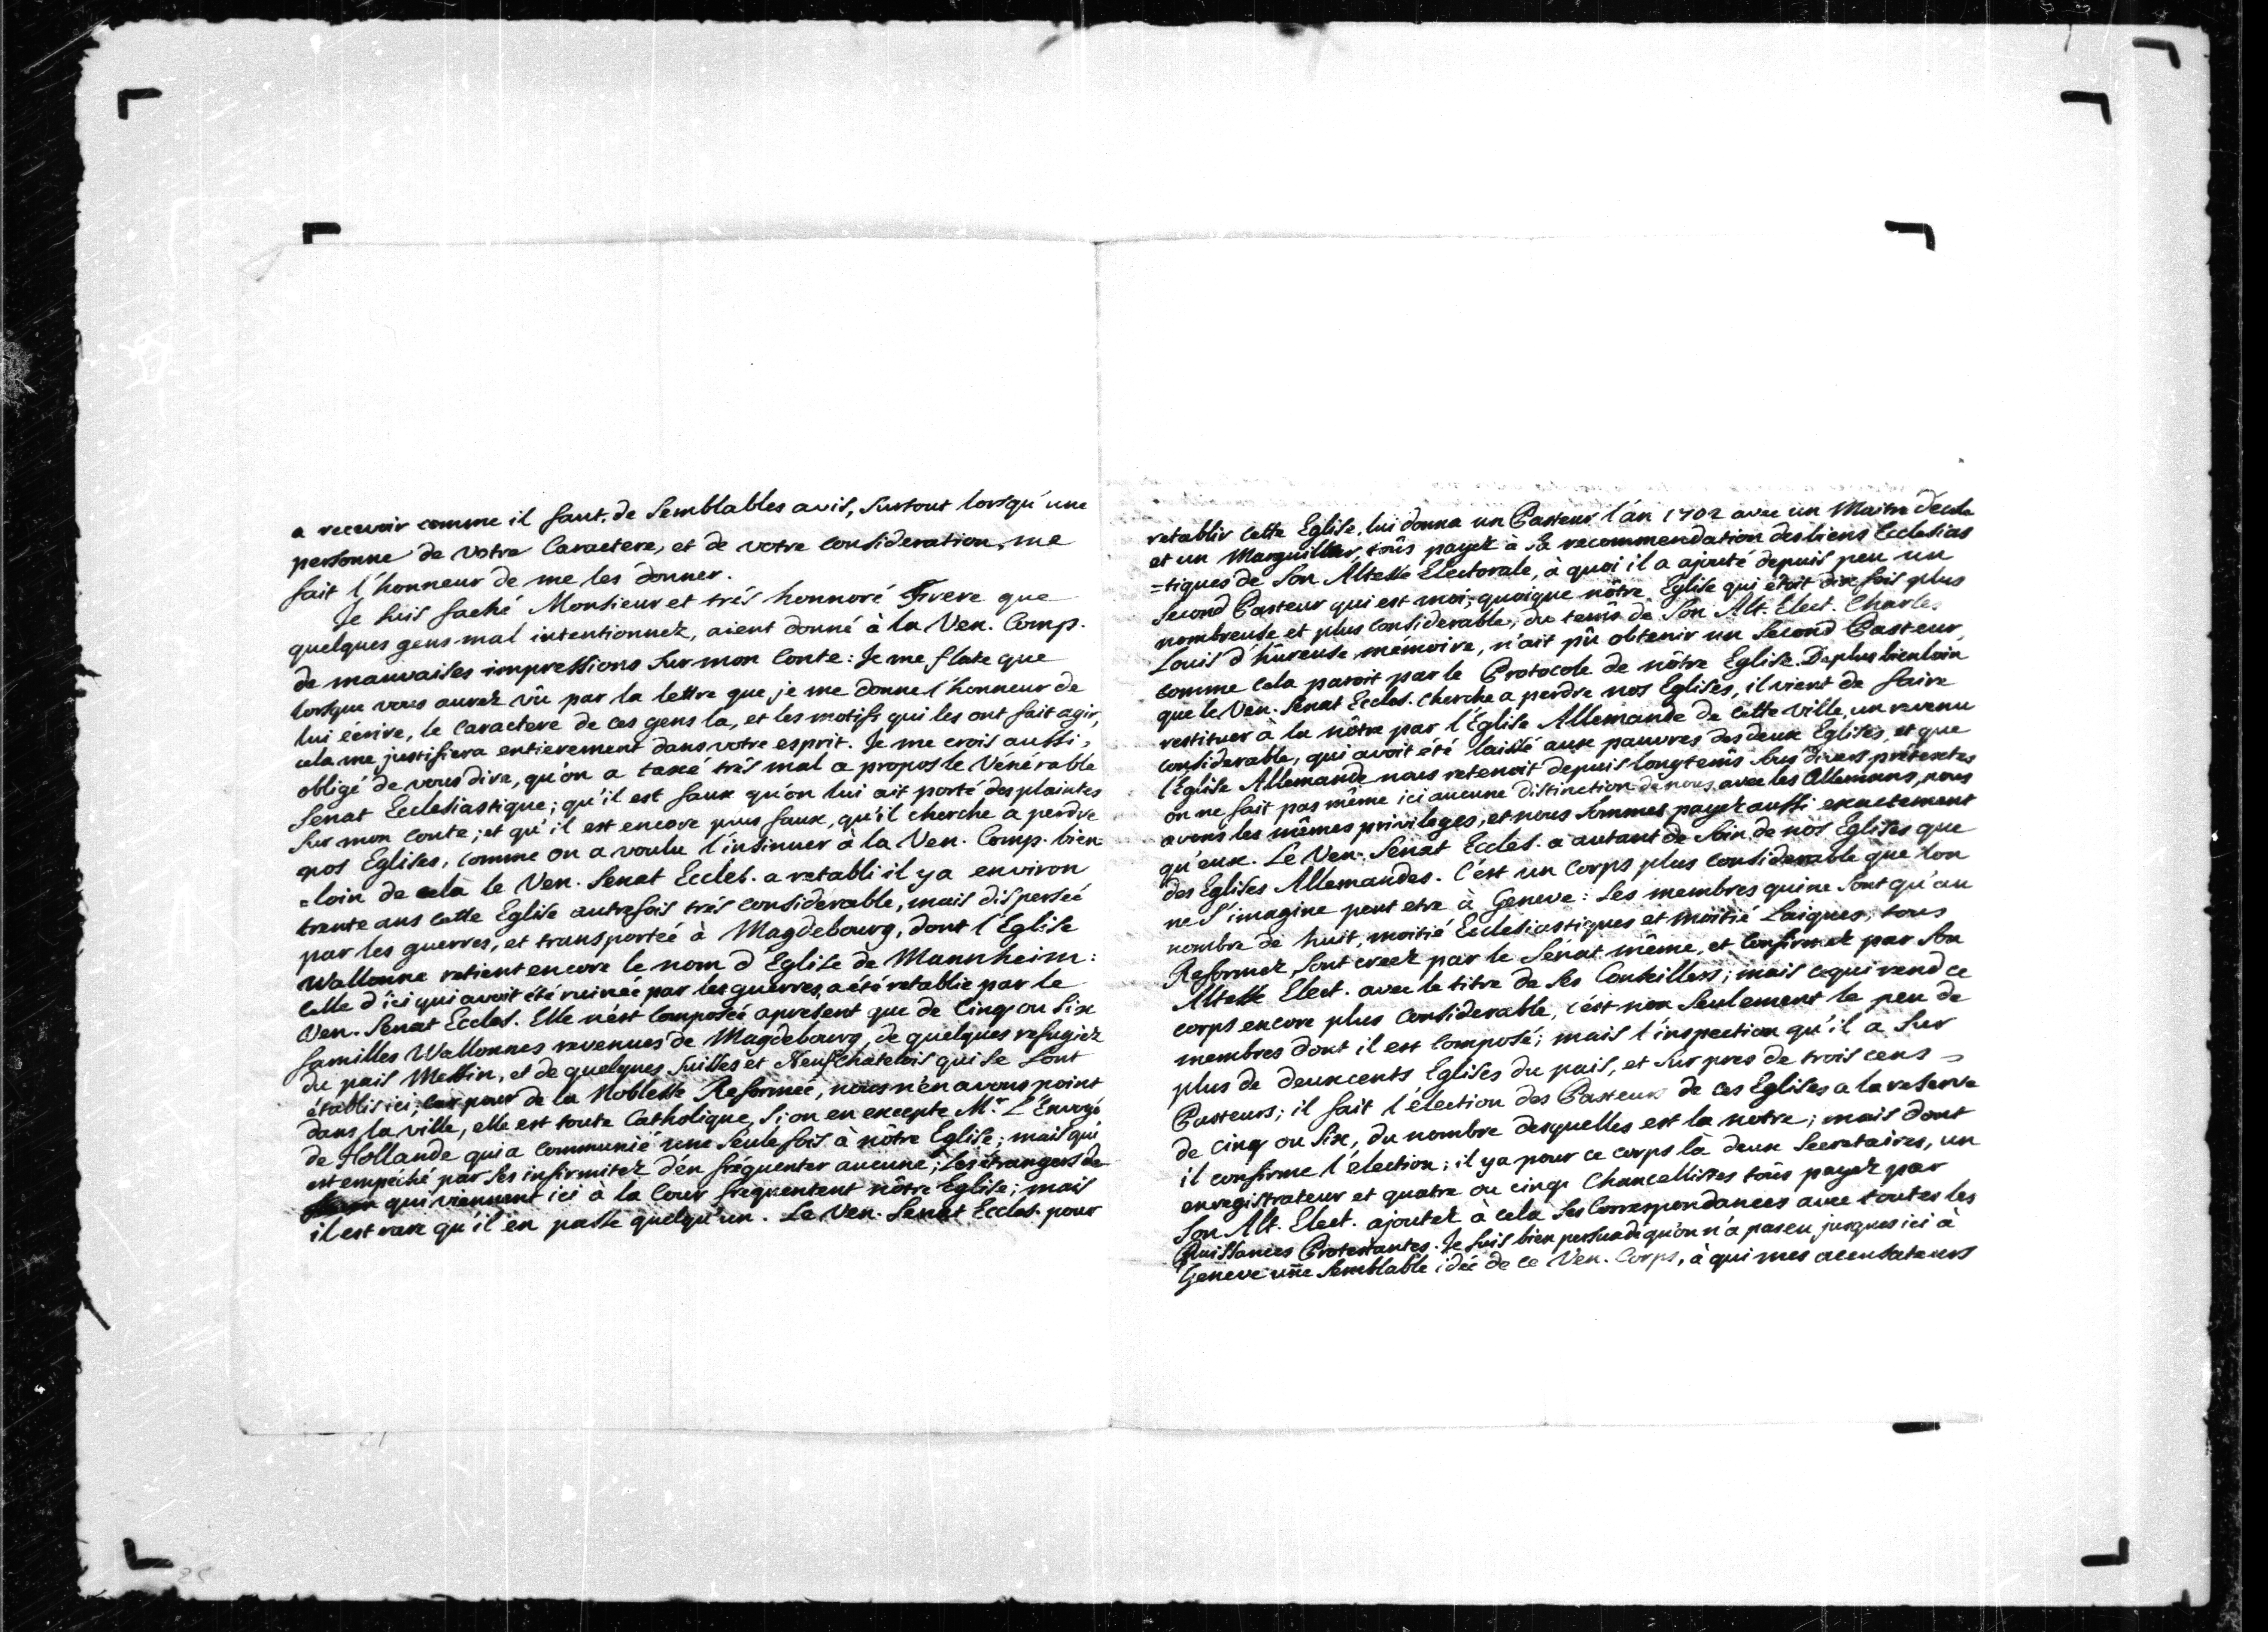 a recevoir comme il faut, de semblables avis, surtout lorsqu'une
personne de votre Caractere, et de votre consideration, me
fait l'honneur de me les donner.
Je suis faché Monsieur et trés honnoré Frere que
quelques gens mal intentionnez, aient donné à la Ven. Comp.
de mauvaises impressions sur mon conte: Je me flate que
lorsque vous aurez vû par la lettre que je me donne l'honneur de
lui écrire, le caractere de ces gens la, et les motifs qui les ont fait agir,
cela me justifiera entierement dans votre esprit. Je me crois aussi,
obligé de vous dire, qu'on a taxé trés mal a propos le Vénérable
Senat Ecclesiastique; qu'il est faux qu'on lui ait porté des plaintes
sur mon conte; et qu'il est encore plus faux, qu'il cherche a perdre
nos Eglises, comme on a voulu l'insinuer à la Ven. Comp. bien
=loin de celà le Ven. Senat Eccles. a retabli il y a environ
trente ans cette Eglise autrefois trés considerable, mais disperseé
par les guerres, et transporteé à Magdebourg, dont l'Eglise
Wallonne retient encore le nom d'Eglise de Mannheim:
celle d'ici qui avoit été ruinée par les guerres, a été retablie par le
Ven. Senat Eccles. Elle n'est composée apresent que de Cinq ou Six
familles Wallonnes revenues de Magdebourg, de quelques refugiez
du païs Messin, et de quelques Suisses et Neufchatelois qui se sont
établis ici; car pour de la Noblesse Reformée, nous n'en avons point
dans la ville, elle est toute Catholique, si on en excepte Mr. L'Envoyé
de Hollande qui a communié une seule fois à nôtre Eglise; mais qui
est empéché par ses infirmitez d'en fréquenter aucune; les étrangers de
qui viennent ici à la Cour frequentent nôtre Eglise; mais
il est rare qu'il en passe quelqu'un. Le Ven. Senat Eccles. pour
retablir cette Eglise, lui donna un Pasteur l'an 1702 avec un Maitre d'ecole
et un Marguillier, toûs payez à sa recommendation des biens Ecclesias
=tiques de Son Altesse Electorale, à quoi il a ajouté depuis peu un
Second Pasteur qui est moi; quoique nôtre Eglise qui étoit dix fois plus
nombreuse et plus considerable, du tems de Son Alt. Elect. Charles
Louis d'hûreuse mémoire, n'ait pû obtenir un Second Pasteur,
comme cela paroit par le Protocole de nôtre Eglise. De plus bien loin
que le Ven. Senat Eccles. cherche a perdre nos Eglises, il vient de faire
restituer à la nôtre par l'Eglise Allemande de cette ville, un revenu
considerable, qui avoit été laissé aux pauvres des deux Eglises, et que
l'Eglise Allemande nous retenoit depuis longtems sous divers pretextes
on ne fait pas même ici aucune distinction de nous avec les Allemans, nous
avons les mêmes privileges, et nous sommes payez aussi exactement
qu'eux. Le Ven. Sénat Eccles. a autant de soin de nos Eglises que
des Eglises Allemandes. C'est un Corps plus considerable que l'on
ne s'imagine peut etre à Geneve: Ses membres qui ne sont qu'au
nombre de huit, moitié Ecclesiastiques et moitié Laiques, tous
Reformez, sont creez par le Sénat même, et confirmez par Son
Altesse Elect. avec le titre de ses Conseillers; mais ce qui rend ce
corps encore plus considerable, c'est non seulement le peu de
membres dont il est composé; mais l'inspection qu'il a sur
plus de deux cents Eglises du païs, et sur pres de trois cens
Pasteurs; il fait l'élection des Pasteurs de ces Eglises a la reserve
de cinq ou six, du nombre desquelles est la notre; mais dont
il confirme l'élection; il y a pour ce corps là deux Secretaires, un
enregistrateur et quatre ou cinq Chancellistes toûs payez par
Son Alt. Elect. ajoutez à cela ses Correspondances avec toutes les
Puissances Protestantes. Je suis bien persuadé qu'on n'a pas eu jusques ici à
Geneve une semblable idée de ce Ven. Corps, à qui mes accusateurs